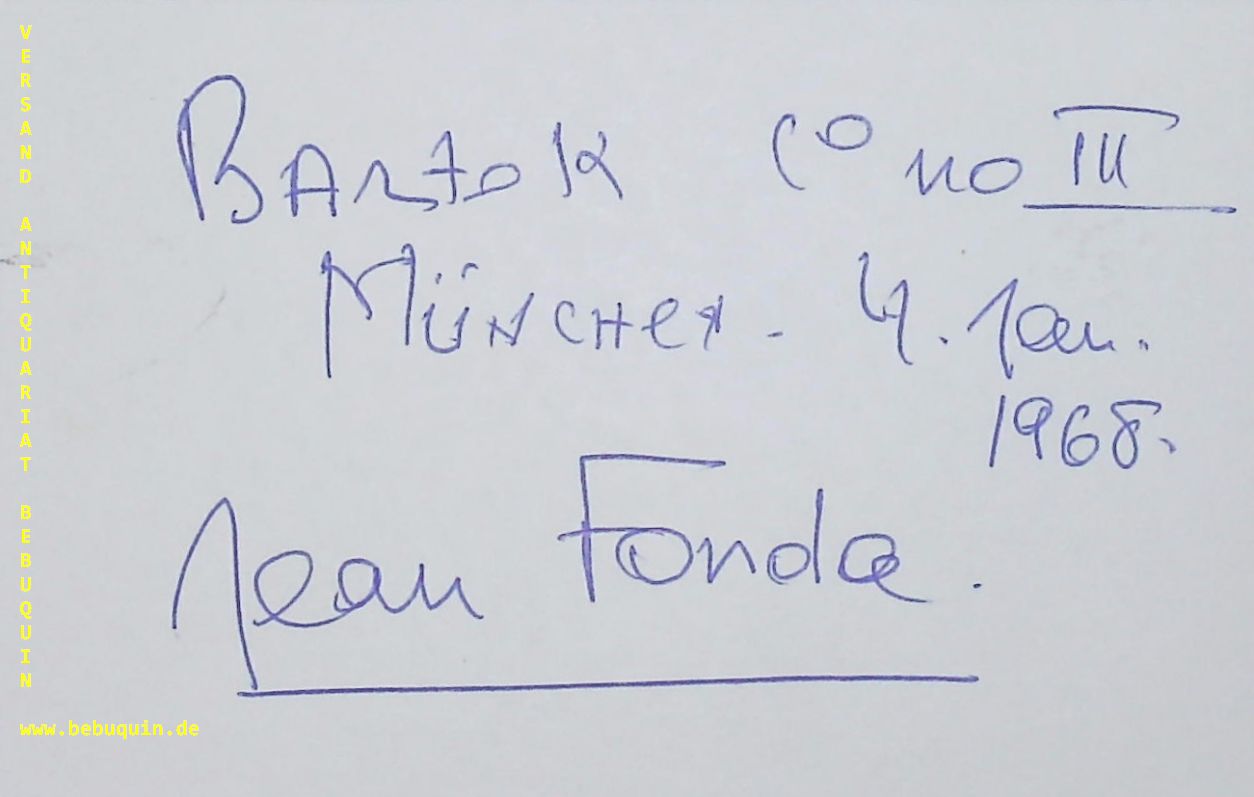 VERSAND ANTIQUARIAT BEBUQUIN
Bartok Co no III
München - 4. Jan.
1968.
Jean Fonda.
www.bebuquin.de